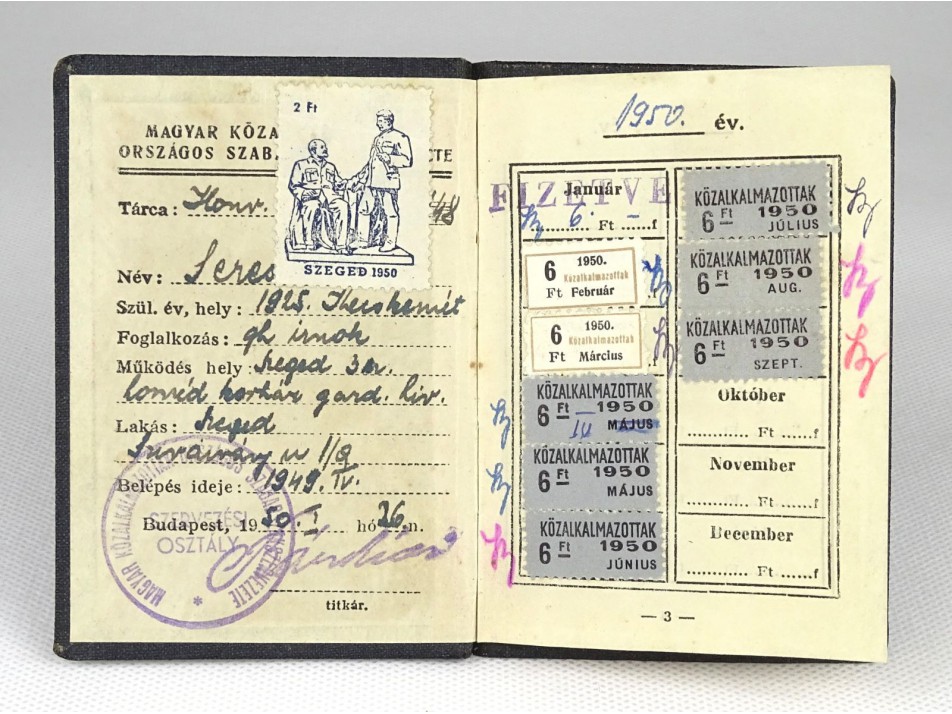 2 Ft
SZEGED 1950
MAGYAR KÖZA
ORSZÁGOS SZAB. ETE
Tárca: Honv. 48
Név: Seres
Szül. év, hely: 1925. Kecskemét
Foglalkozás: gh írnok
Működés hely: Szeged 3
honvéd gard. hiv.
Lakás: Szeged
Szivárvány u 1/a
Belépés ideje: 1949. IV.
Budapest, 1950. I hó 26. n.
titkár.
MAGYAR KÖZALKALMAZOTTAK ORSZÁGOS SZABAD SZAKSZERVEZETE
SZERVEZÉSI
OSZTÁLY
1950. év.
FIZETVE
Január
6. Ft – f
1950.
6 Közalkalmazottak
Ft Február
1950.
6 Közalkalmazottak
Ft Március
KÖZALKALMAZOTTAK
6 Ft 1950
MÁJUS
KÖZALKALMAZOTTAK
6 Ft 1950
MÁJUS
KÖZALKALMAZOTTAK
6 Ft 1950
JÚNIUS
KÖZALKALMAZOTTAK
6 Ft 1950
JÚLIUS
KÖZALKALMAZOTTAK
6 Ft 1950
AUG.
KÖZALKALMAZOTTAK
6 Ft 1950
SZEPT.
Október
Ft f
November
Ft f
December
Ft f
— 3 —